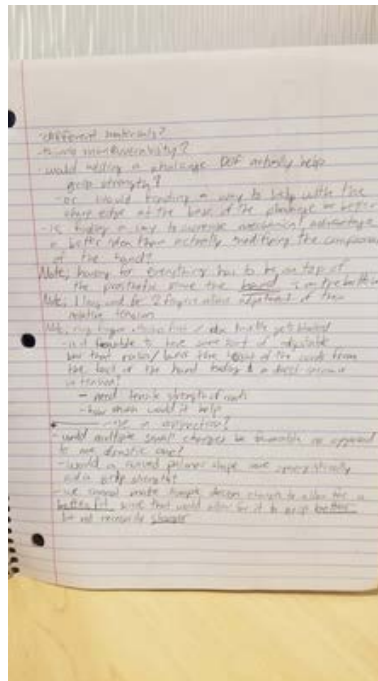 -different materials?
-thumb maneuverability?
-would adding a phalange DOF actually help
grip strength?
-or would finding a way to help with the
sharp edge at the base of the phalange be better
-is finding a way to increase mechanical advantage
a better idea than actually modifying the components
of the hand?
Note, housing for everything has to be on top of
the prosthetic since the hand is on the bottom
Note, 1 long cord for 2 fingers allows adjustment of their
relative tension
Note, ring finger closes first / idea gets blocked
-is it feasible to have some sort of adjustable
bar that raises/lowers the height of the cords from
the back of the hand leading to a direct increase
in tension?
- need tensile strength of cords
-how much would it help
- use in application?
-would multiple small changes be favorable as opposed
to one drastic one?
-would a curved palmar shape more
aid in grip strength?
-we cannot make simple design changes to allow for a
better fit, since that would allow for it to grip better
but not necessarily stronger